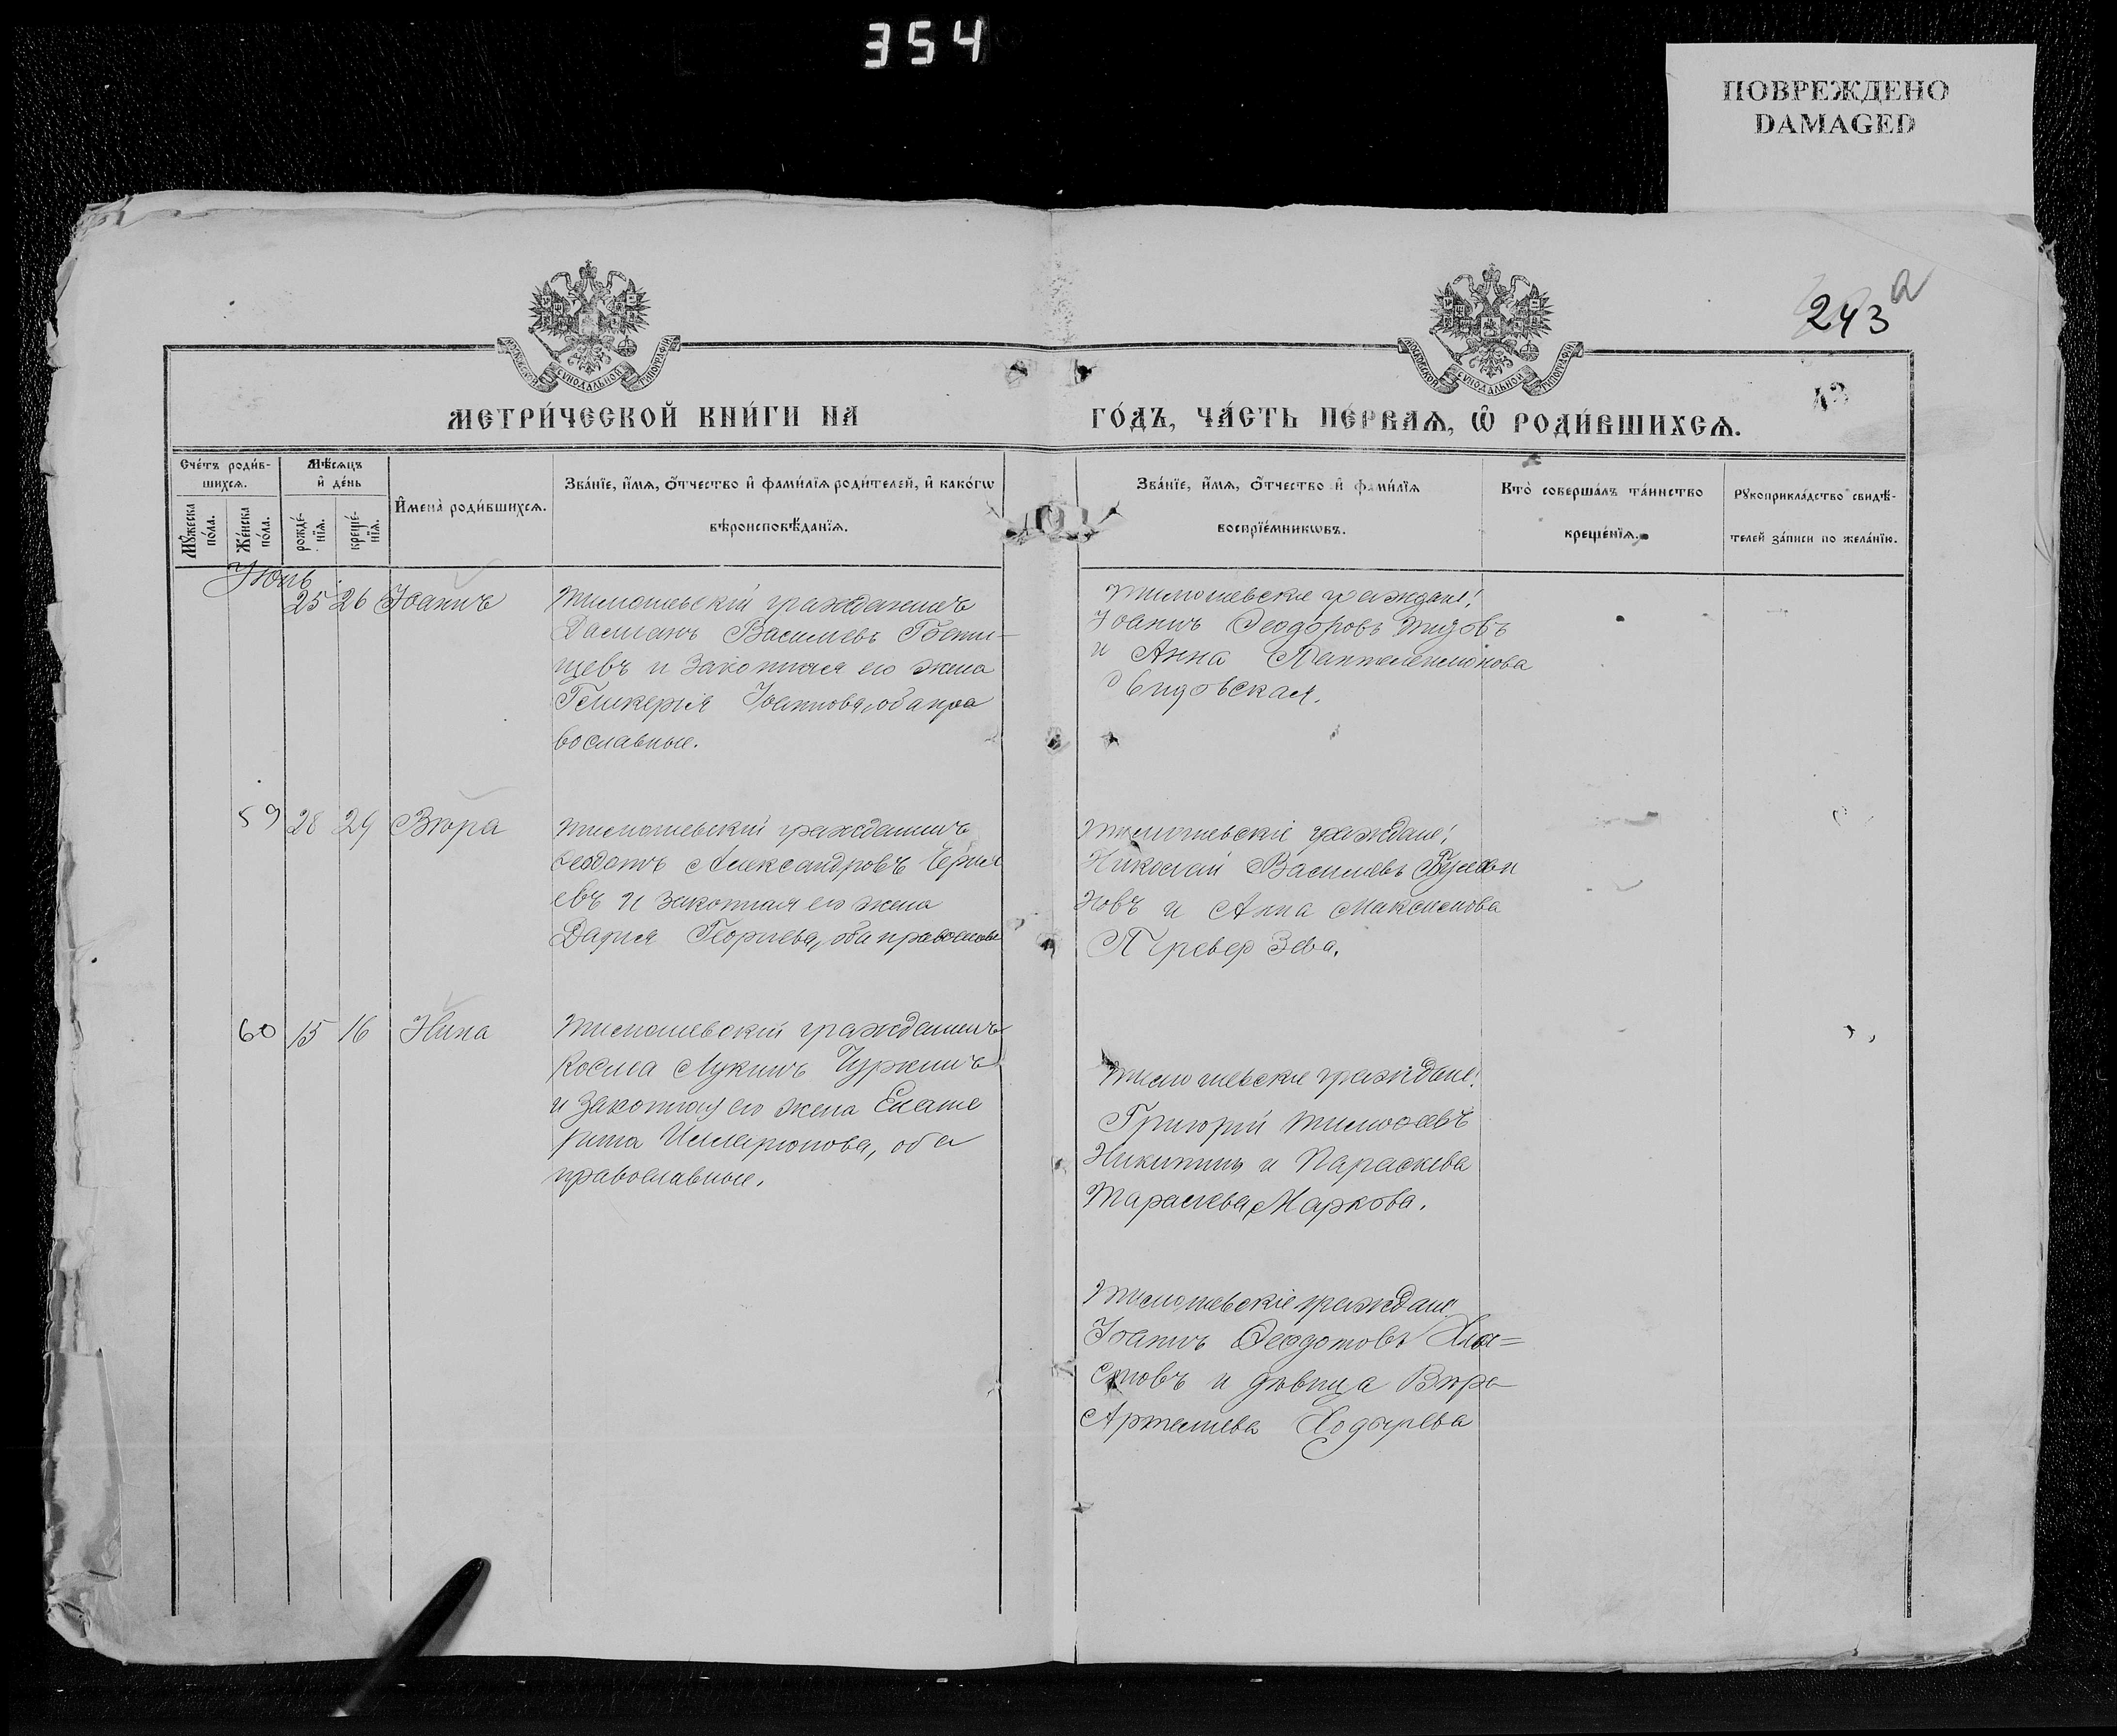 354
ПОВРЕЖДЕНО
DAMAGED
243 а
МОСКОВСКОЙ СУНОДАЛЬНОЙ ТИПОГРАФІИ
МОСКОВСКОЙ СУНОДАЛЬНОЙ ТИПОГРАФІИ
МЕТРИ́ЧЕСКОЙ КНИ́ГИ НА
ГО́ДЪ, ЧА́СТЬ ПЕ́РВАѦ, Ѡ҆ РОДИ́ВШИХСѦ.
Сче́тъ роди́в-
шихсѧ.
Мꙋ́жеска по́ла.
Же́нска по́ла.
Мѣ́сѧцъ
и҆ де́нь
рожде́-
нїѧ.
креще́-
нїѧ.
И҆мена̀ роди́вшихсѧ.
Зва́нїе, и҆́мѧ, ѻ҆́тчество и҆ фами́лїѧ роди́телей, и҆ како́гѡ
вѣроисповѣ́данїѧ.
Зва́нїе, и҆́мѧ, ѻ҆́тчество и҆ фами́лїѧ
воспрїе́мникѡвъ.
Кто̀ соверша́лъ та́инство
креще́нїѧ.
Рꙋкоприкла́дство свидѣ́-
телей за́писи по жела́нїю.
Іюнь
25 26 Іоаннъ
Тимошевскій гражданинъ
Дамианъ Василіевъ
и законная его жена
Гликерія Іоаннова, оба пра
вославные.
Тимошевскіе граждане:
Іоаннъ Ѳеодоровъ
и Анна Пантелеимонова
59 28 29 Вѣра
Тимошевскій гражданинъ
Ѳеодотъ Александровъ
евъ и законная его жена
Дарія Георгіева, оба православн
Тимошевскіе граждане:
Николай Василіевъ
новъ и Анна Максимова
Перевер зева.
60 15 16 Нина
Тимошевскій гражданинъ
Косма Лукинъ Чуркинъ
и законная его жена Екате
рина Илларіонова, оба
православные.
Тимошевскіе граждане:
Григорій Тимоѳеевъ
Никитинъ и Параскева
Тарасіева Маркова.
Тимошевскіе граждане
Іоаннъ Ѳеодотовъ Хлы=
стовъ и дѣвица Вѣра
Артеміева Ходырева